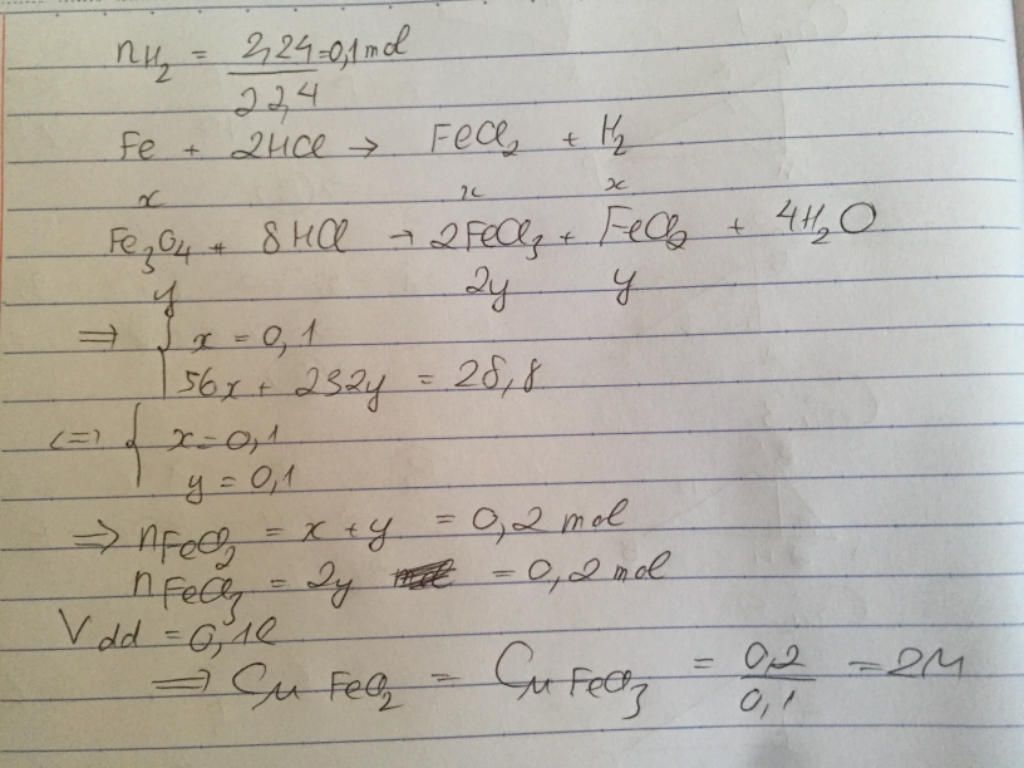 nH₂ = 2,24/22,4 = 0,1 mol
Fe + 2HCl → FeCl₂ + H₂
x x x
Fe₃O₄ + 8HCl → 2FeCl₃ + FeCl₂ + 4H₂O
y 2y y
⇒ { x = 0,1
56x + 232y = 28,8
<=> { x = 0,1
y = 0,1
⇒ nFeCl₂ = x + y = 0,2 mol
nFeCl₃ = 2y = 0,2 mol
Vdd = 0,1l
⇒ CM FeCl₂ = CM FeCl₃ = 0,2/0,1 = 2M